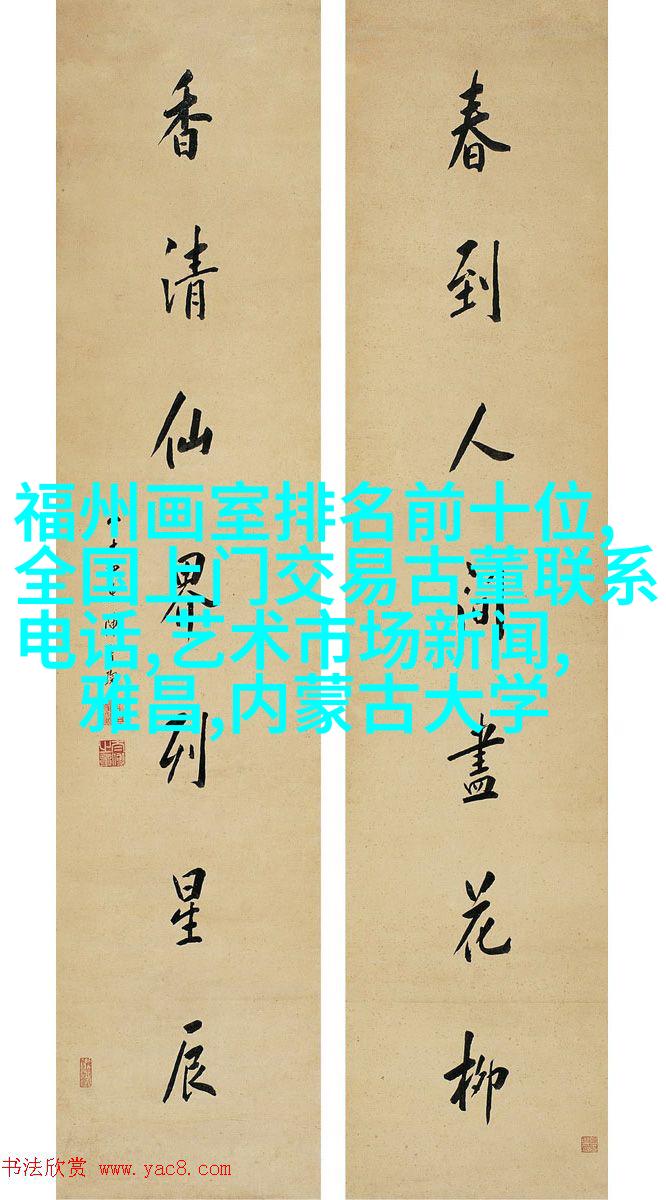 春到人間盡花柳
香清仙界列星辰
福州画室排名前十位,
全国上门交易古董联系
电话,艺术市场新闻,
雅昌,内蒙古大学
书法欣赏 www.yac8.com